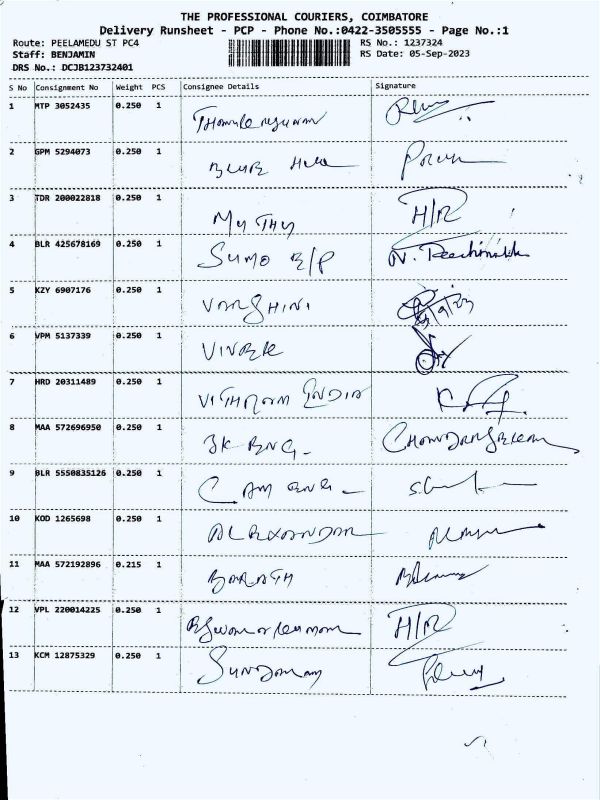 THE PROFESSIONAL COURIERS, COIMBATORE
Delivery Runsheet - PCP - Phone No.:0422-3505555 - Page No.:1
Route: PEELAMEDU ST PC4 RS No.: 1237324
Staff: BENJAMIN RS Date: 05-Sep-2023
DRS No.: DCJB123732401
S No Consignment No Weight PCS Consignee Details Signature
1 MTP 3052435 0.250 1
2 GPM 5294073 0.250 1
3 TDR 200022818 0.250 1 MUTHU H/R
4 BLR 425678169 0.250 1 SUMO E/P
5 KZY 6907176 0.250 1 VARSHINI
6 VPM 5137339 0.250 1 VIVEK
7 HRD 20311489 0.250 1 INDIA
8 MAA 572696950 0.250 1 ENG-
9 BLR 5550835126 0.250 1 CAM ENG -
10 KOD 1265698 0.250 1 ALEXANDAR
11 MAA 572192896 0.215 1 BARATH
12 VPL 220014225 0.250 1 H/R
13 KCM 12875329 0.250 1